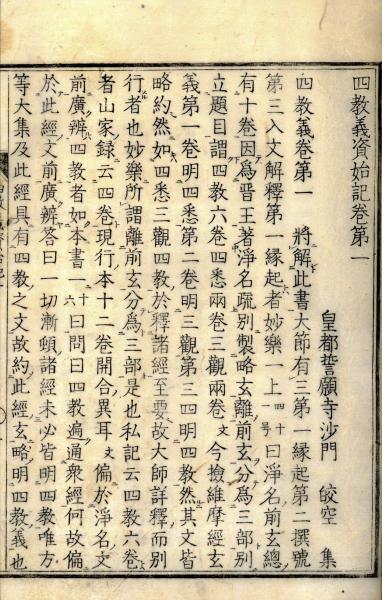 四教義資始記卷第一
皇都誓願寺沙門 皎空 集
四教義卷第一 將解此書大節有三第一緣起第二撰號
第三入文解釋第一緣起者妙樂一上四十一号曰淨名前玄總
有十卷因爲晉王著淨名疏別製略玄離前玄分爲三部別
立題目謂四教六卷四悉兩卷三觀兩卷文今撿維摩經玄
義第一卷明四悉第二卷明三觀第三四明四教然其文皆
略約然如四悉三觀四教於釋諸經至要故大師詳釋而別
行者也妙樂所謂離前玄分爲三部是也私記云四教六卷
者山家錄云四卷現行本十二卷開合異耳文偏於淨名文
前廣辨四教者如本書一十六曰問曰四教遍通衆經何故偏
於此經文前廣辨答曰一切漸頓諸經未必皆明四教唯方
等大集及此經具有四教之文故約此經玄略明四教義也